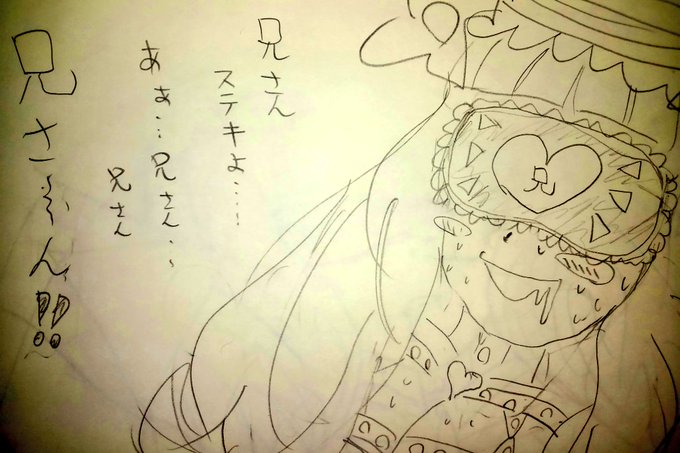 兄さん
ステキよ…
あぁ…兄さん…
兄さん
兄さぶん!!!
兄